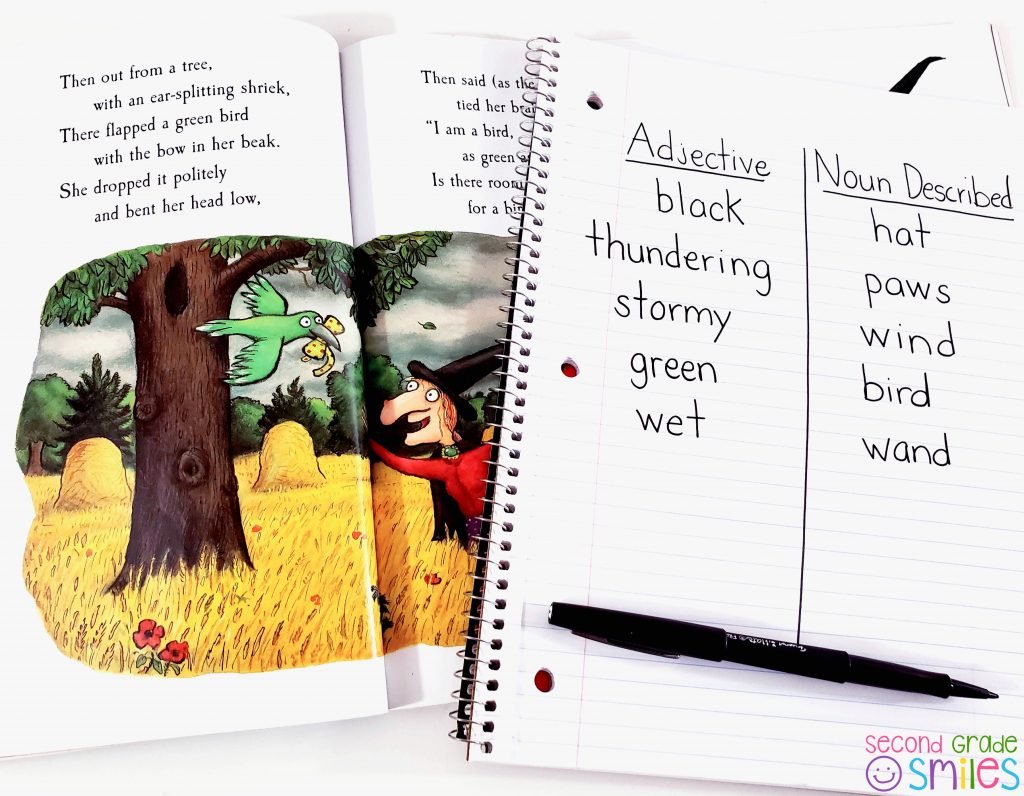 Then out from a tree,
with an ear-splitting shriek,
There flapped a green bird
with the bow in her beak.
She dropped it politely
and bent her head low,
Then said (as the
tied her
"I am a bird,
as green
Is there room
for a
Adjective
black
thundering
stormy
green
wet
Noun Described
hat
paws
wind
bird
wand
second grade
smiles